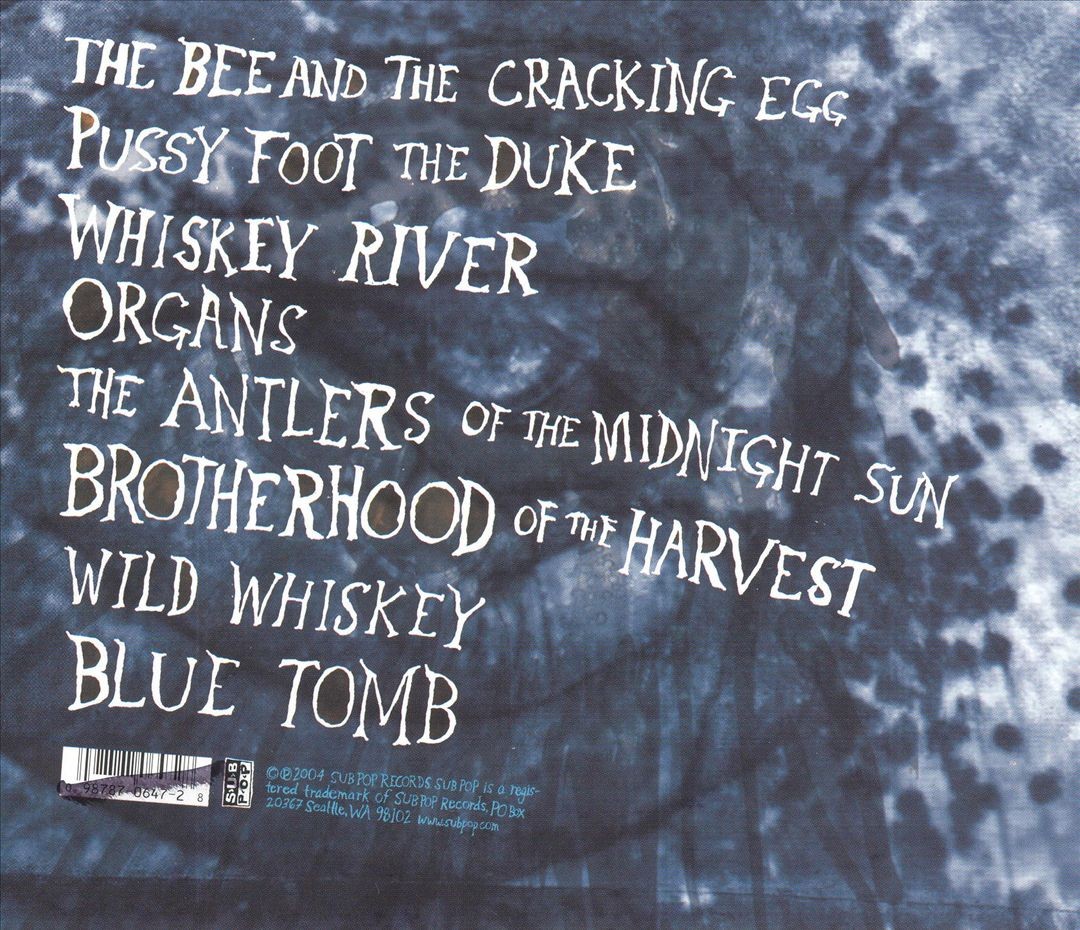 THE BEE AND THE CRACKING EGG
PUSSY FOOT THE DUKE
WHISKEY RIVER
ORGANS
THE ANTLERS OF THE MIDNIGHT SUN
BROTHERHOOD OF THE HARVEST
WILD WHISKEY
BLUE TOMB
0 98787-0647-2 8
SUB POP
©℗2004 SUB POP RECORDS SUB POP is a regis-
tered trademark of SUB POP Records, PO Box
20367 Seattle, WA 98102 www.subpop.com